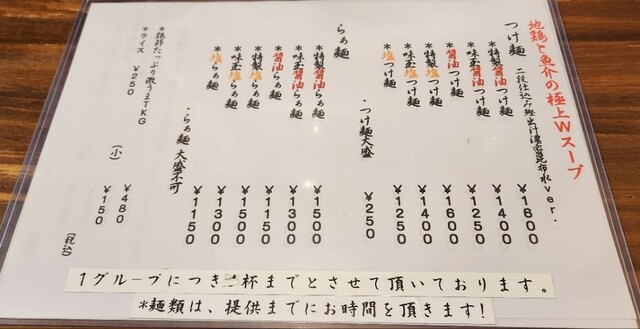 地鶏と魚介の極上Wスープ
つけ麺 二段仕込み鰹出汁濃密昆布水ver.
*特製醤油つけ麺 ¥1600
*味玉醤油つけ麺 ¥1400
*醤油つけ麺 ¥1250
*特製塩つけ麺 ¥1600
*味玉塩つけ麺 ¥1400
*塩つけ麺 ¥1250
・つけ麺大盛 ¥250
らぁ麺
*特製醤油らぁ麺 ¥1500
*味玉醤油らぁ麺 ¥1300
*醤油らぁ麺 ¥1150
*特製塩らぁ麺 ¥1500
*味玉塩らぁ麺 ¥1300
*塩らぁ麺 ¥1150
・らぁ麺 大盛不可
*鶏節たっぷり激うまTKG ¥480
*ライス ¥250 (小) ¥150
(税込)
1グループにつき二杯までとさせて頂いております。
*麺類は、提供までにお時間を頂きます!